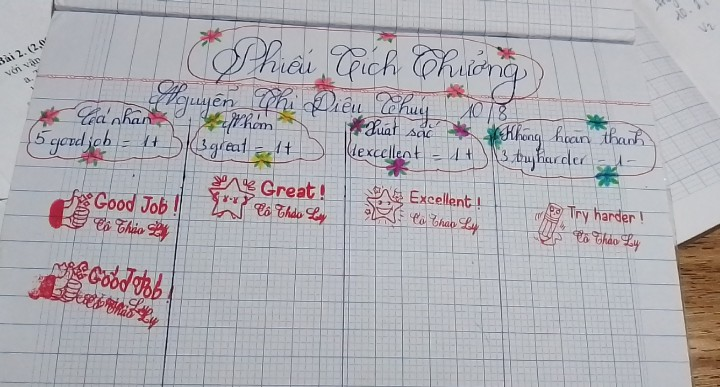 Bài 2. (2,0
với văn
Phiếu Tích Thưởng
Nguyễn Thị Diệu Thuy 10/8
Cá nhân
5 good job = 1+
Nhóm
3 great = 1+
Xuất sắc
1 excellent = 1+
Không hoàn thành
3 try harder = 1-
Good Job !
Cô Thảo Ly
Great !
Cô Thảo Ly
Excellent !
Cô Thảo Ly
Try harder !
Cô Thảo Ly
Good Job !
Cô Thảo Ly